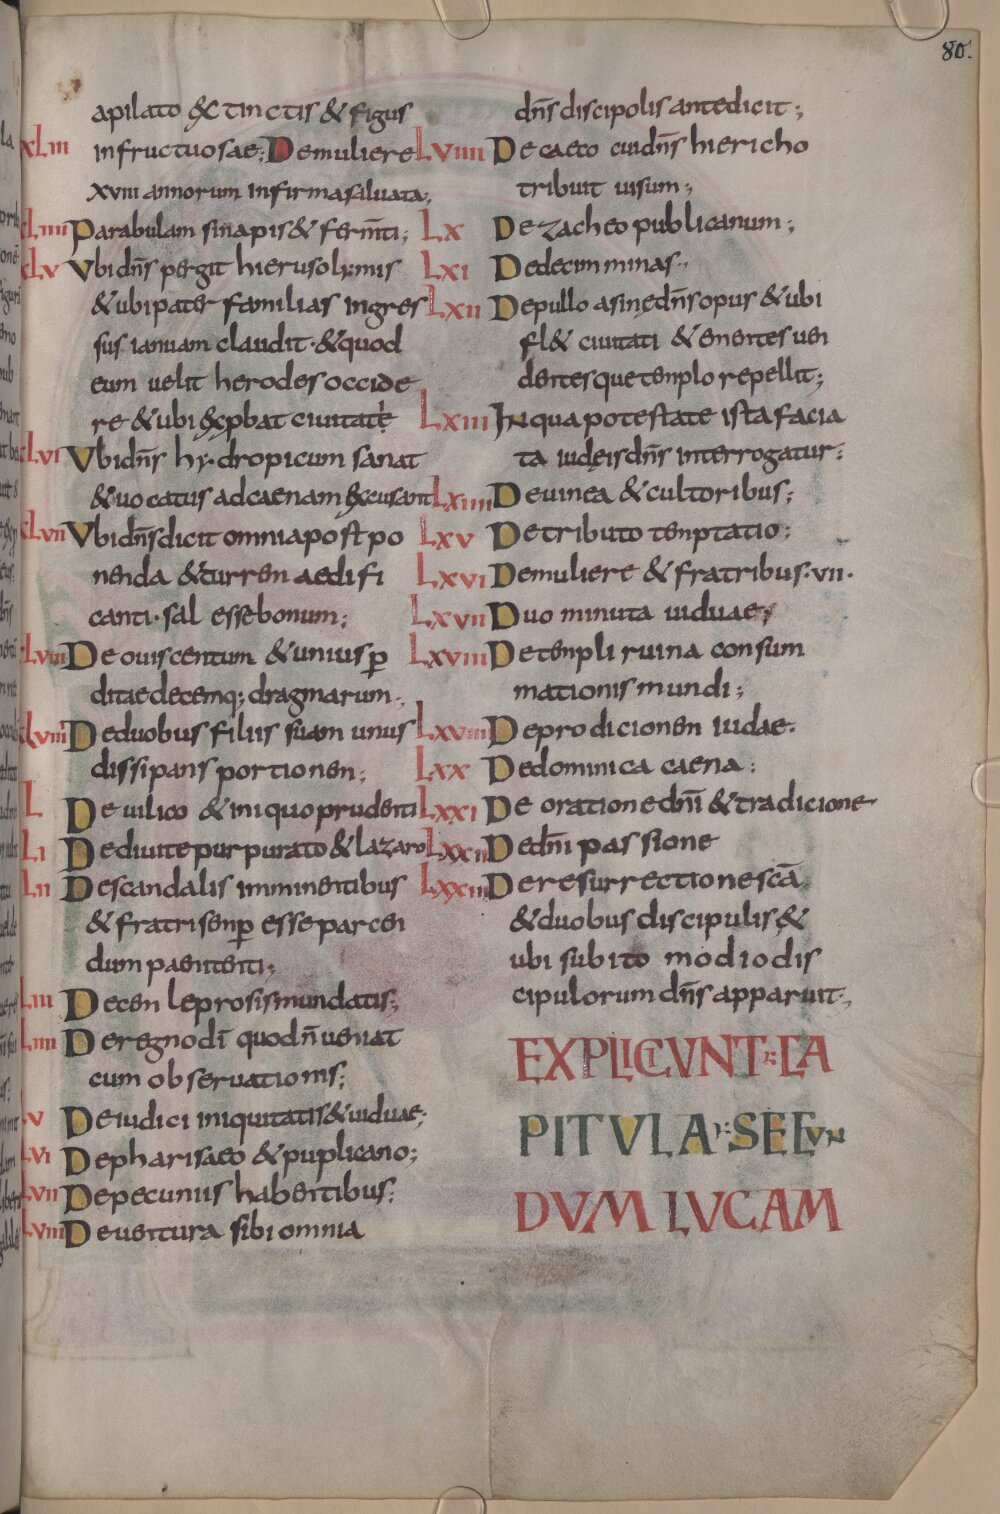 80.
apilato & tinctis & figus
XLIII infructuosae; De muliere
XVIII annorum infirma saluata;
XLIIII Parabulam sinapis & fermti;
XLV Vbi dn̄s pergit hierusolymis
& ubi pater familias ingres
sus ianuam claudit · & quod
eum uelit herodes occide
re & ubi exp̄bat ciuitatē
XLVI Vbi dn̄s hydropicum sanat
& uocatus ad caenam excusant
XLVII Vbi dn̄s dicit omnia postpo
nenda & turren aedifi
canti · sal esse bonum;
XLVIII De ouis centum & unius p̄
ditae decemq; dragmarum;
XLVIIII De duobus filiis suam unus
dissipans portionen;
L De uilico & iniquo prudenti
LI De diuite purpurato & lazaro
LII De scandalis imminentibus
& fratri senp̄ esse parcen
dum paenitenti;
LIII Decen leprosis mundatis;
LIIII De regno dī quod n̄ ueniat
cum obseruationis;
LV De iudici iniquitatis & uiduae;
LVI De pharisaeo & puplicano;
LVII De pecuniis habentibus;
LVIII De uentura sibi omnia
dn̄s discipolis antedicit;
LVIIII De caeco cui dn̄s hiericho
tribuit uisum;
LX De zacheo publicanum;
LXI De decim minas;
LXII De pullo asine dn̄s opus & ubi
fl& ciuitati & ementes uen
dentesque templo repellit;
LXIII In qua potestate ista facia
ta iudeis dn̄s interrogatur;
LXIIII De uinea & cultoribus;
LXV De tributo temptatio;
LXVI De muliere & fratribus · VII ·
LXVII Duo minuta uiduae;
LXVIII De templi ruina consum
mationis mundi;
LXVIIII De prodicionen iudae.
LXX De dominica caena;
LXXI De oratione dn̄i & tradicione
LXXII De dn̄i passione
LXXIII De resurrectione scā
& duobus discipulis &
ubi subito modio dis
cipulorum dn̄s apparuit;
EXPLICIVNT CA
PITVLA SECVN
DVM LVCAM